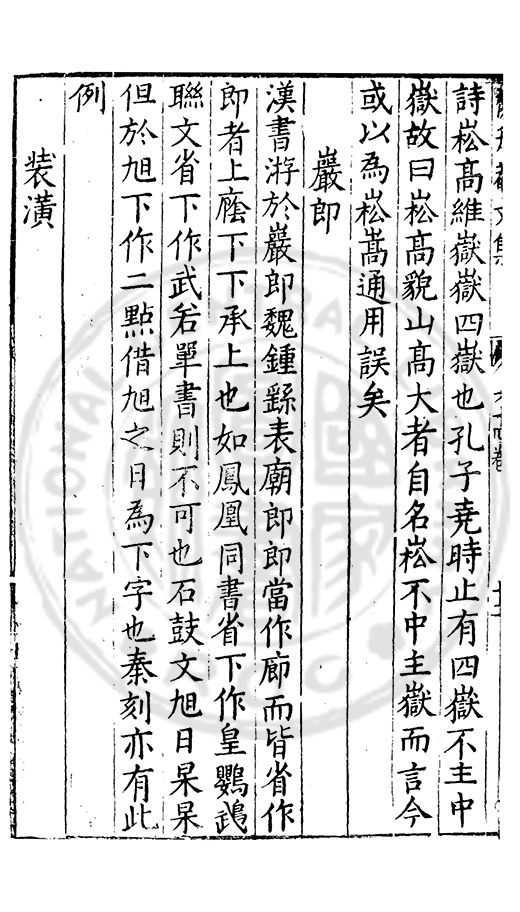 詩崧高維嶽嶽四嶽也孔子堯時止有四嶽不主中
嶽故曰崧高貌山高大者自名崧不中主嶽而言今
或以為崧嵩通用誤矣
巖郎
漢書游於巖郎魏鍾繇表廟郎郎當作廊而皆省作
郎者上廕下下承上也如鳳凰同書省下作皇鸚鵡
聯文省下作武若單書則不可也石鼓文旭日杲杲
但於旭下作二點借旭之日為下字也秦刻亦有此
例
装潢